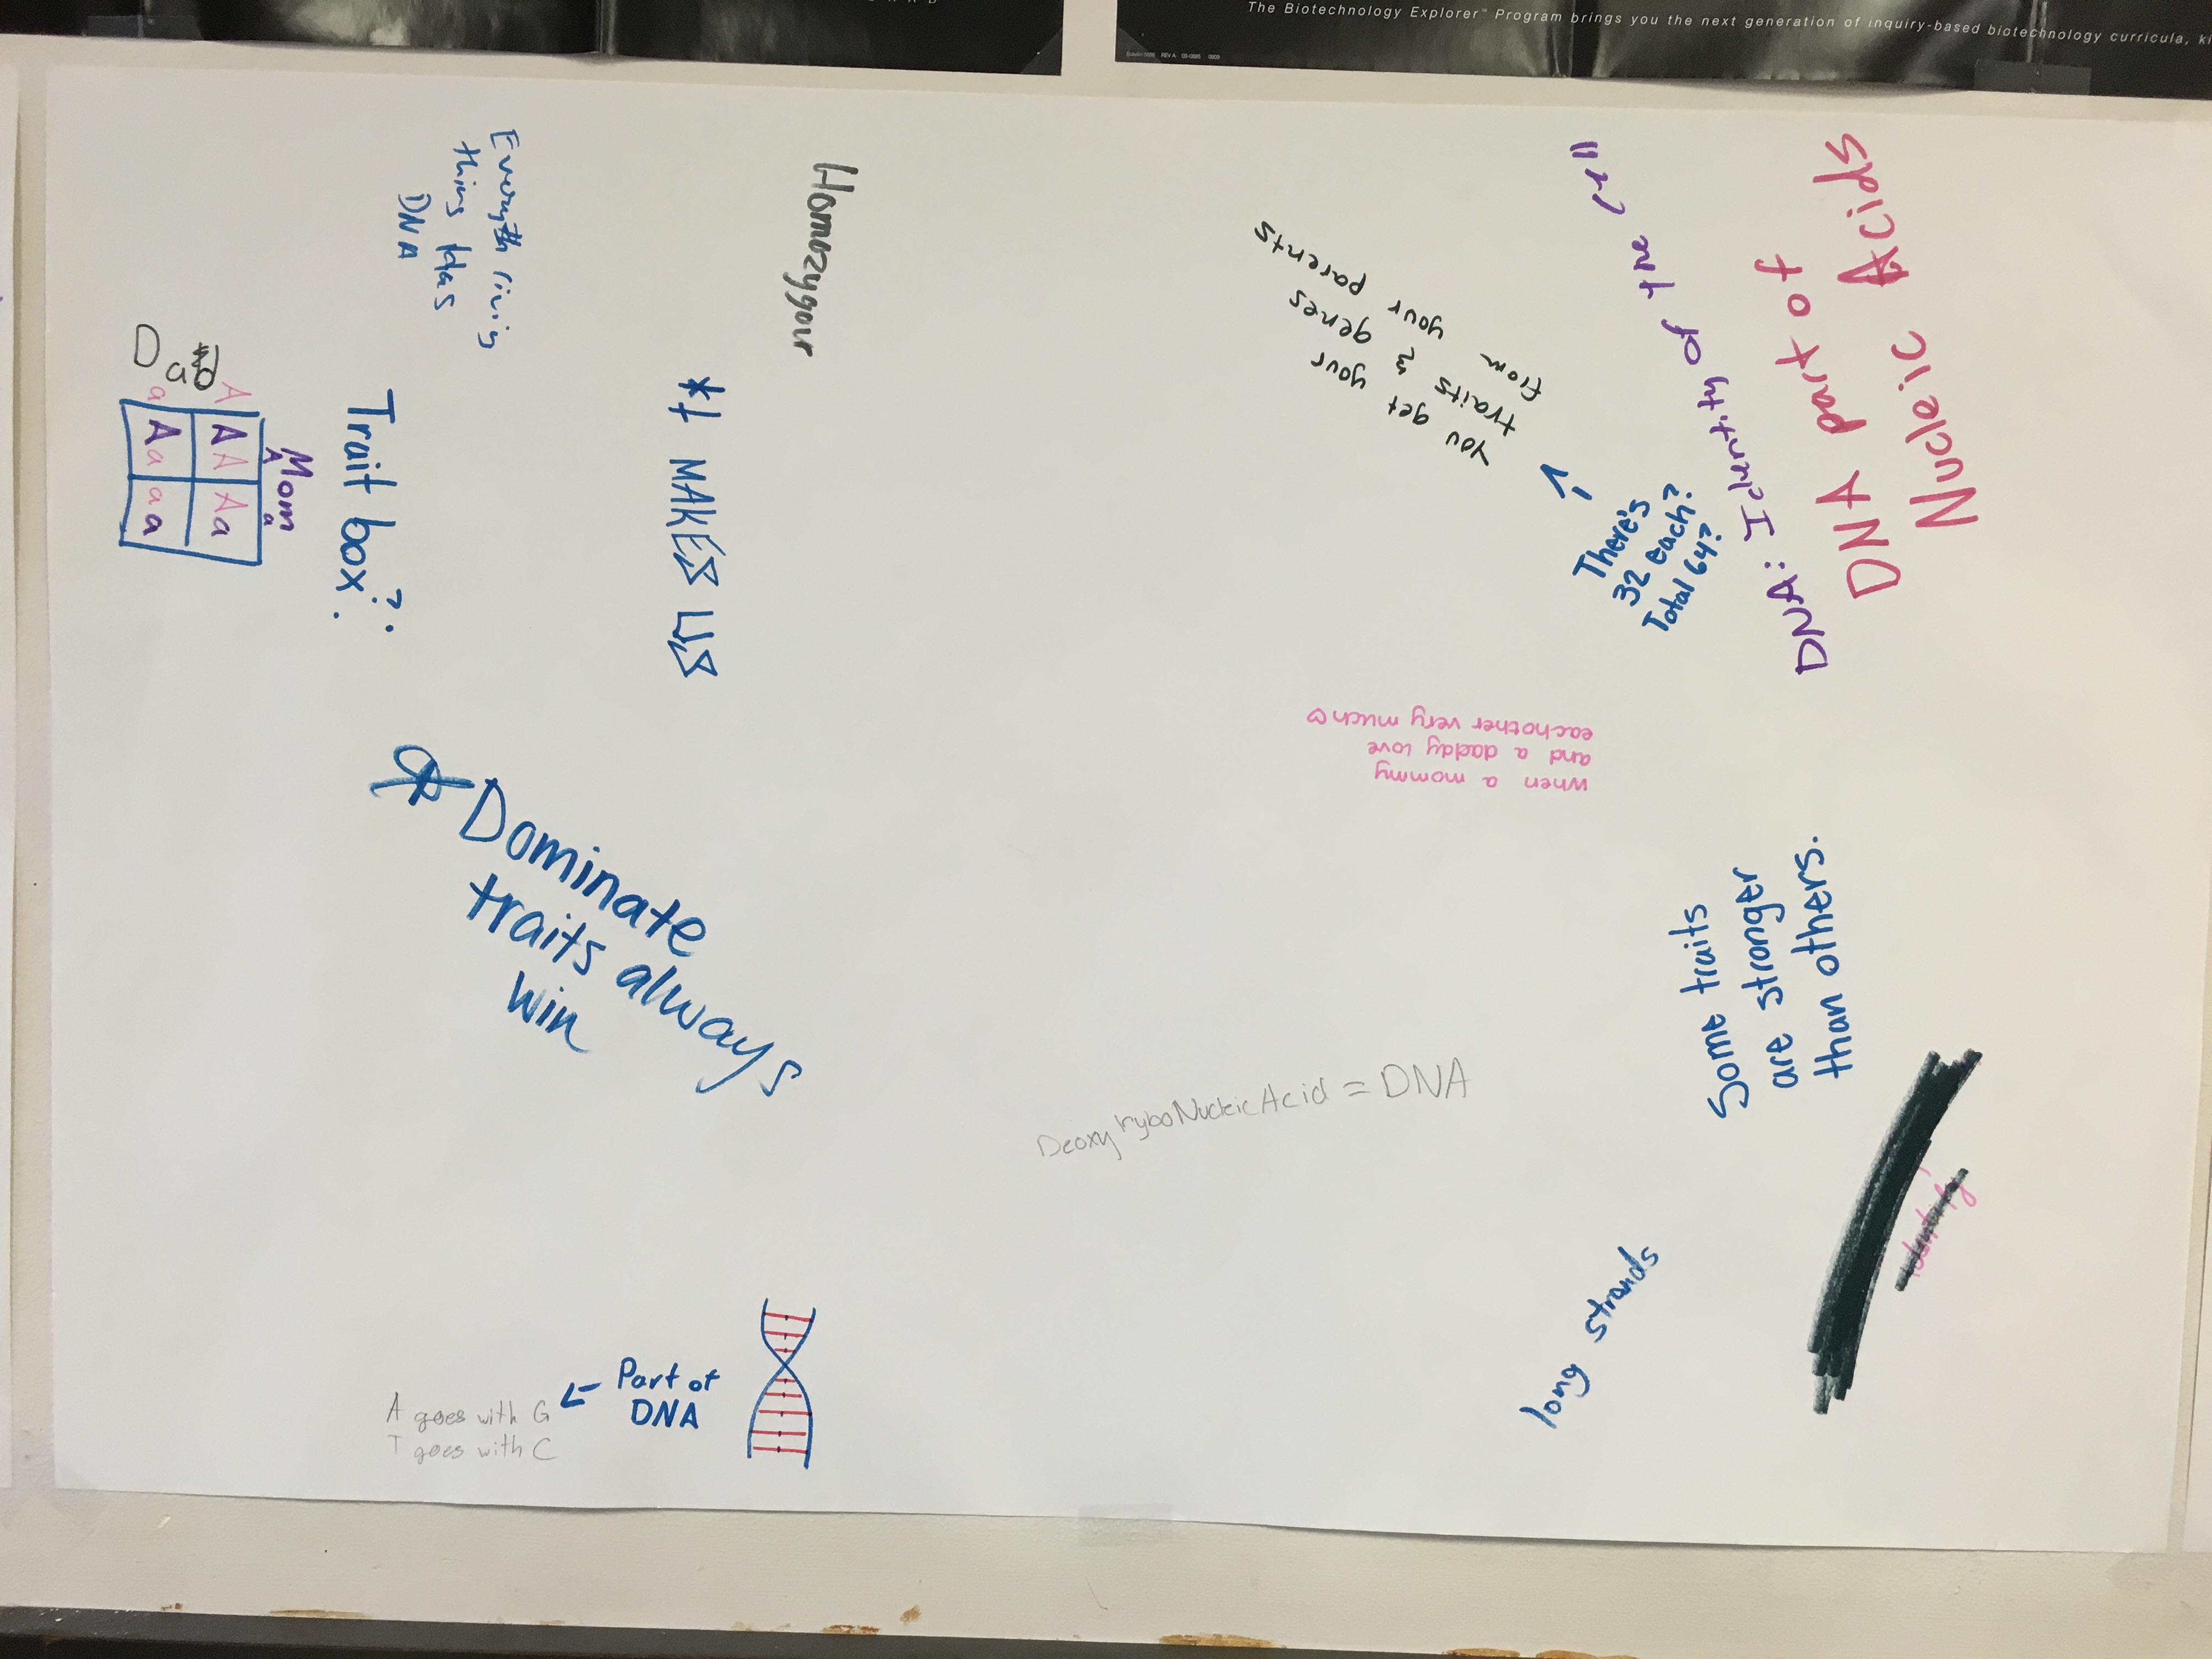 The Biotechnology Explorer™ Program brings you the next generation of inquiry-based biotechnology curricula, ki
DNA part of
Nucleic Acids
DNA: Identity of the cell
You get your
traits & genes
from your parents
There's
32 each?
Total 64?
when a mommy
and a daddy love
eachother very much
Some traits
are stronger
than others.
identify
long strands
DeoxyryboNucleicAcid = DNA
Homozygour
Everyth livig
thing Has
DNA
* MAKES US
Trait box?
Dad
Mom
A a
A AA Aa
a Aa aa
Dominate
traits always
win
Part of
DNA
A goes with G
T goes with C